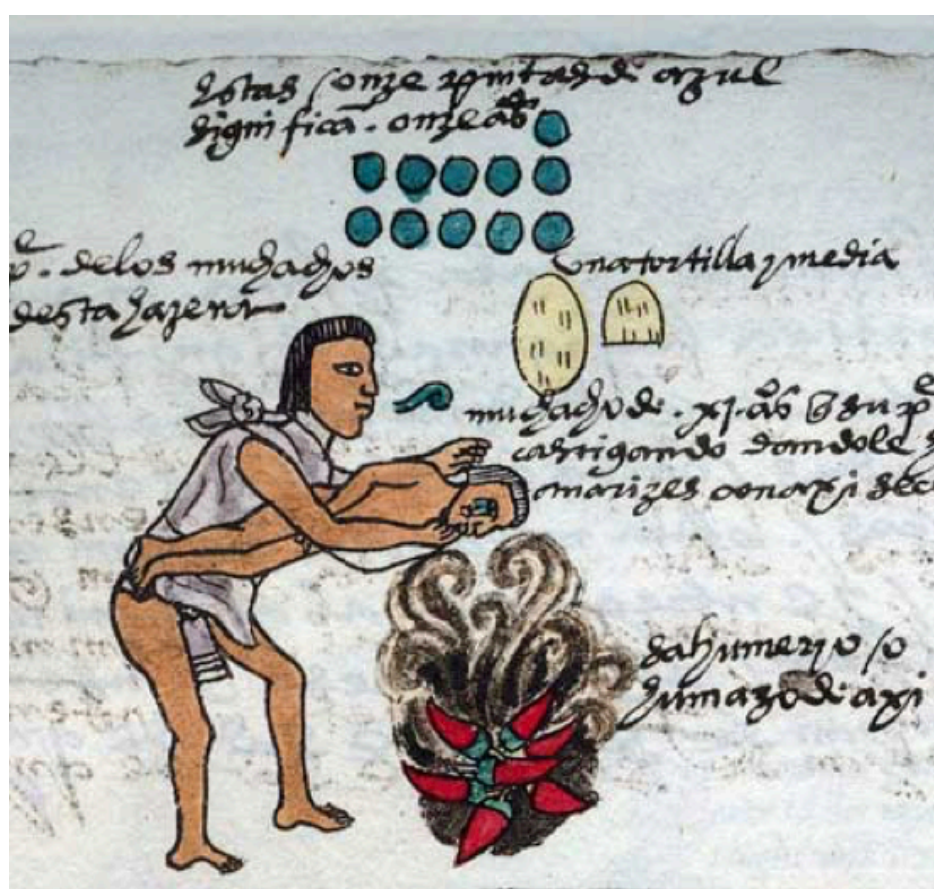 Estas onze pintas de azul
significā. onze aṽs
pᵉ. de los muchachos
desta hazera
una tortilla y media
muchacho de. xj. aᵒs q̃ su pᵉ
castigando dandole
narizes con axi sec
sahumerio so
humazo de axi